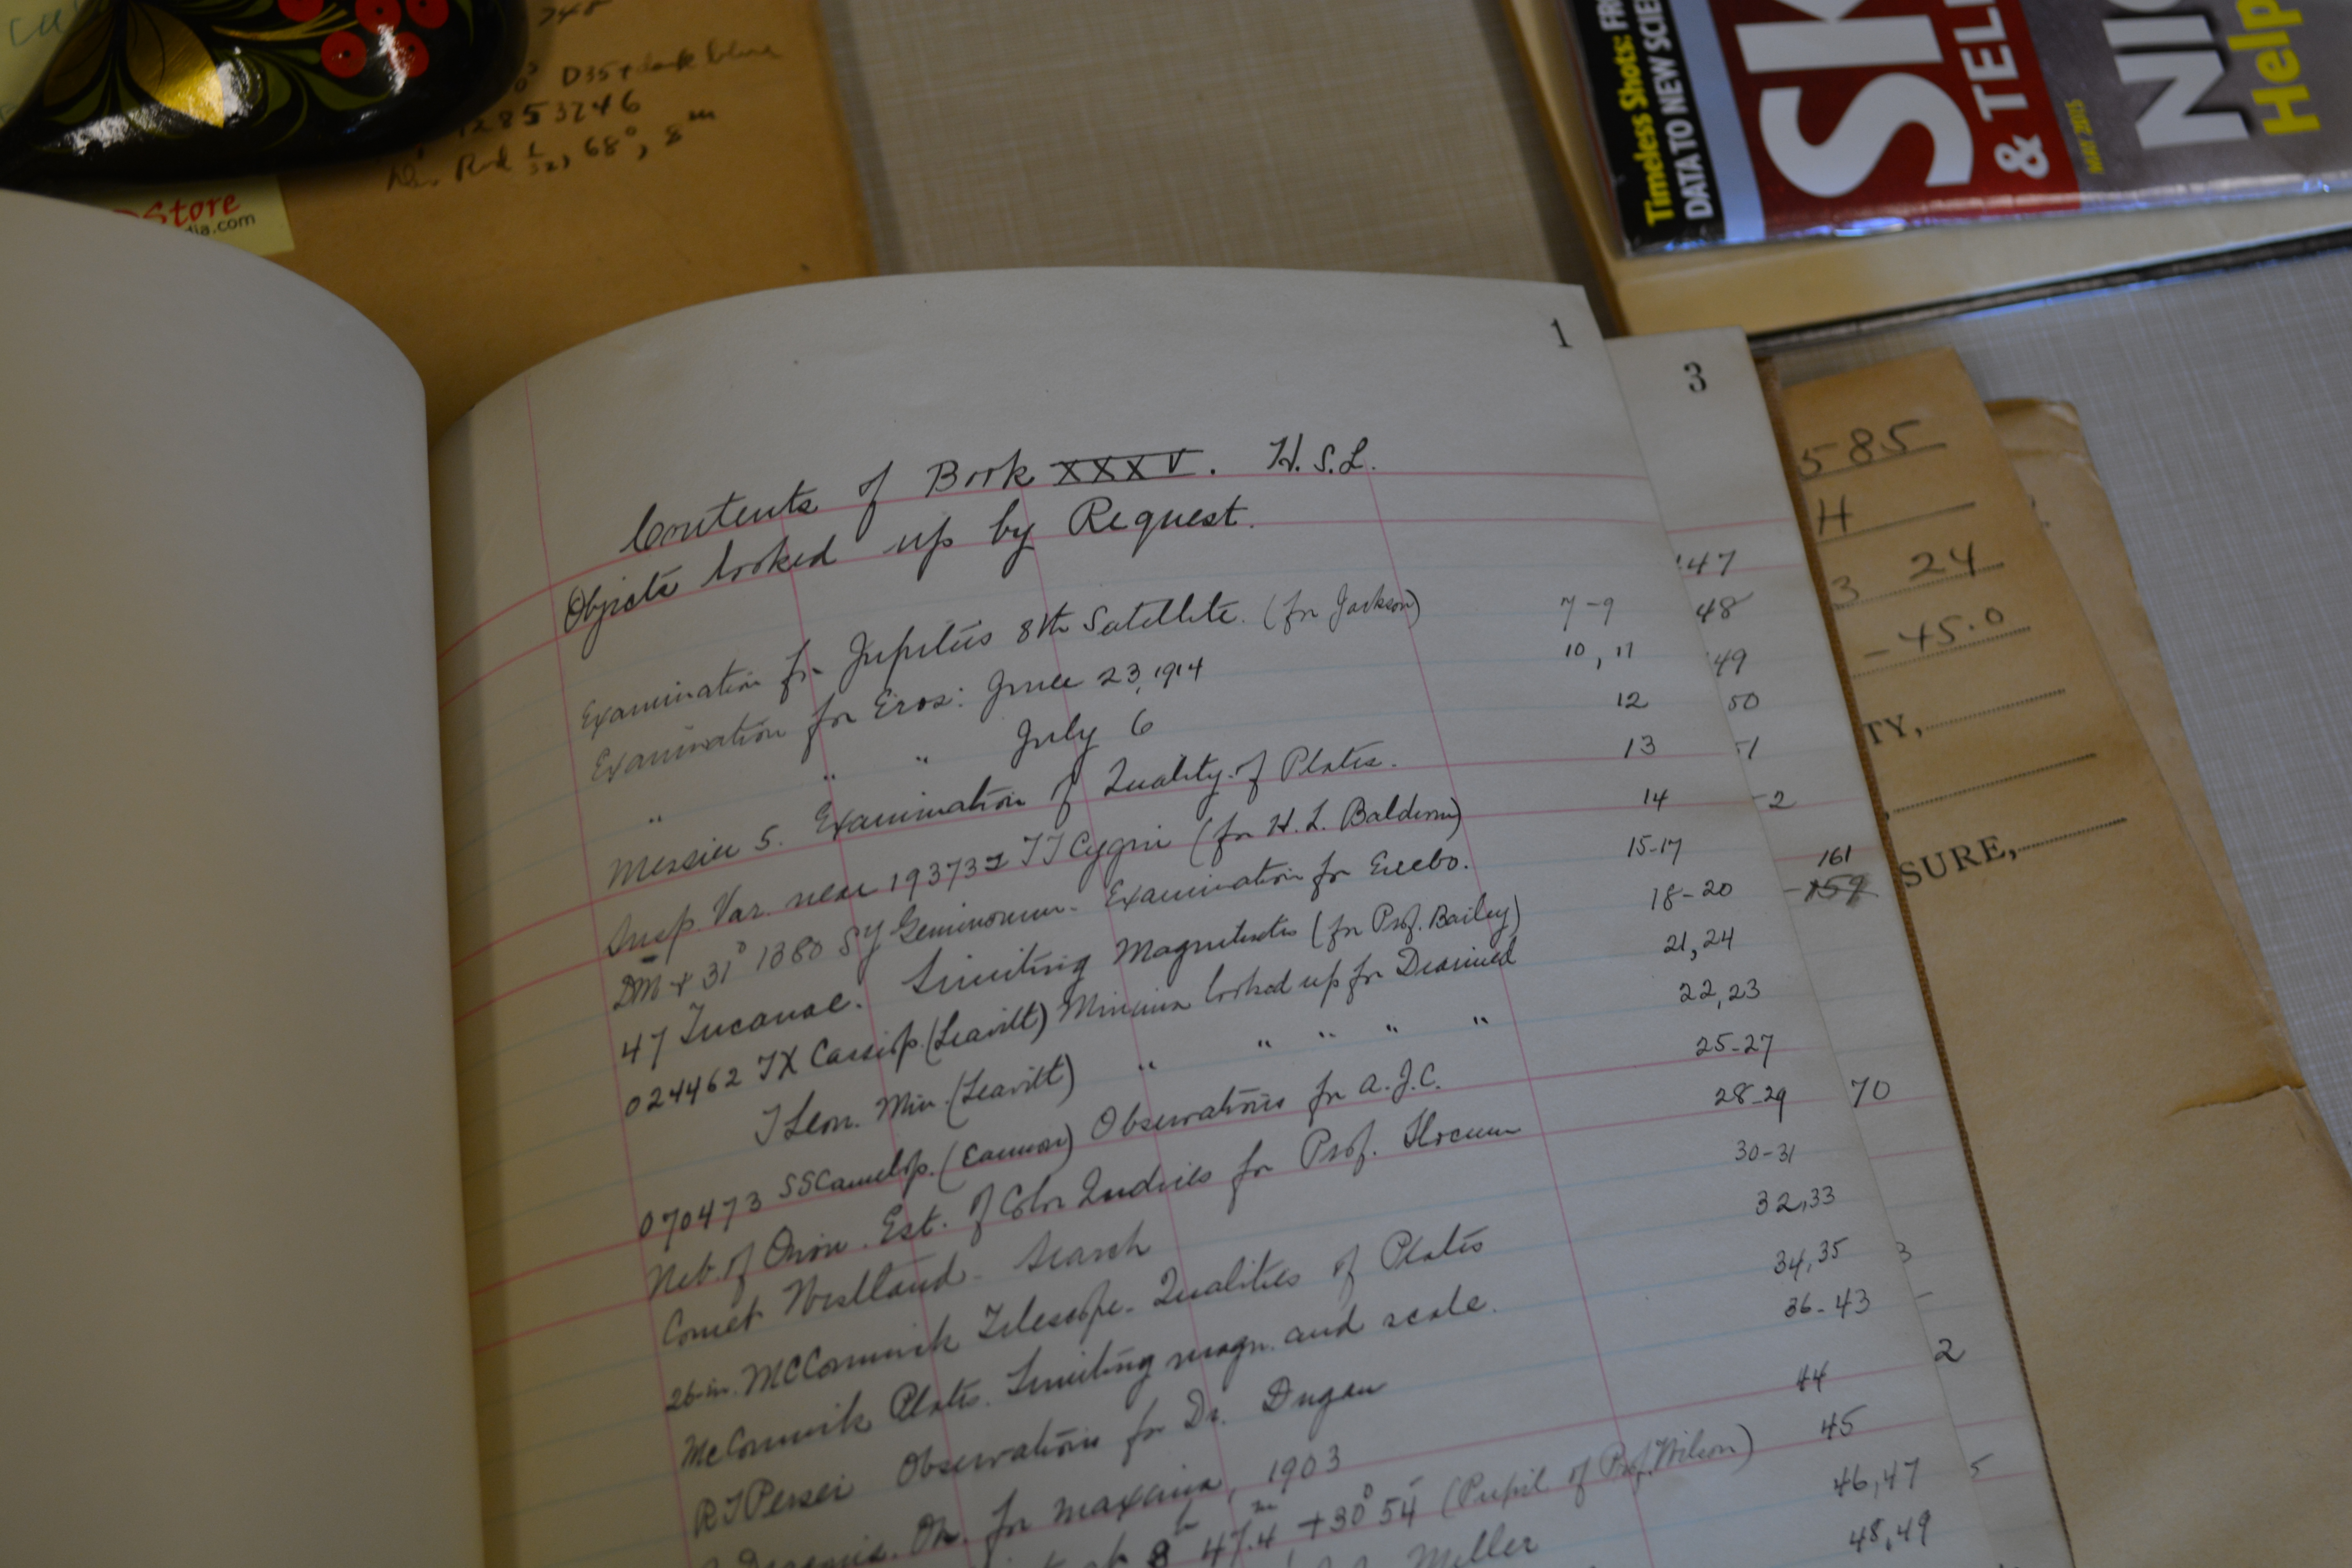 748
D35 + dark blue
12853246
Rud 1/32, 68°, 8m
Store
dia.com
Timeless Shots: FR
DATA TO NEW SCIE
SK
& TEL
MAY 2015
NIG
Help
1
Contents of Book XXXV. H.S.L.
Objects looked up by Request.
Examination for Jupiter's 8th Satellite. (for Jackson) 7-9
Examination for Eros: June 23, 1914 10, 11
" " " July 6 12
Messier 5. Examination of Quality of Plates. 13
Susp. Var. near 193732 TT Cygni (for H. L. Balderm) 14
DM + 31° 1380 SY Geminorum. Examination for Enebo. 15-17
47 Tucanae. Limiting Magnitudes (for Prof. Bailey) 18-20
024462 TX Cassiop. (Leavitt) Minima looked up for 21, 24
T Leon. Min. (Leavitt) " " " " " 22, 23
070473 SS Camelop. (Cannon) Observations for A.J.C. 25-27
Neb. of Orion. Est. of Color Indices for Prof. Slocum 28-29
Comet Westland - Search 30-31
26-in. McCormick Telescope - Qualities of Plates 32,33
McCormick Plates. Limiting magn. and scale. 34,35
RT Persei Observations for Dr. Dugan 36-43
Obs. for maxima, 1903 44
8h 47.4m +30° 54' (Pupil of Prof. Wilson) 45
Miller 46,47
48,49
3
147
48
49
50
51
2
161
159
70
3
2
5
585
H
3 24
-45.0
TY,
SURE,